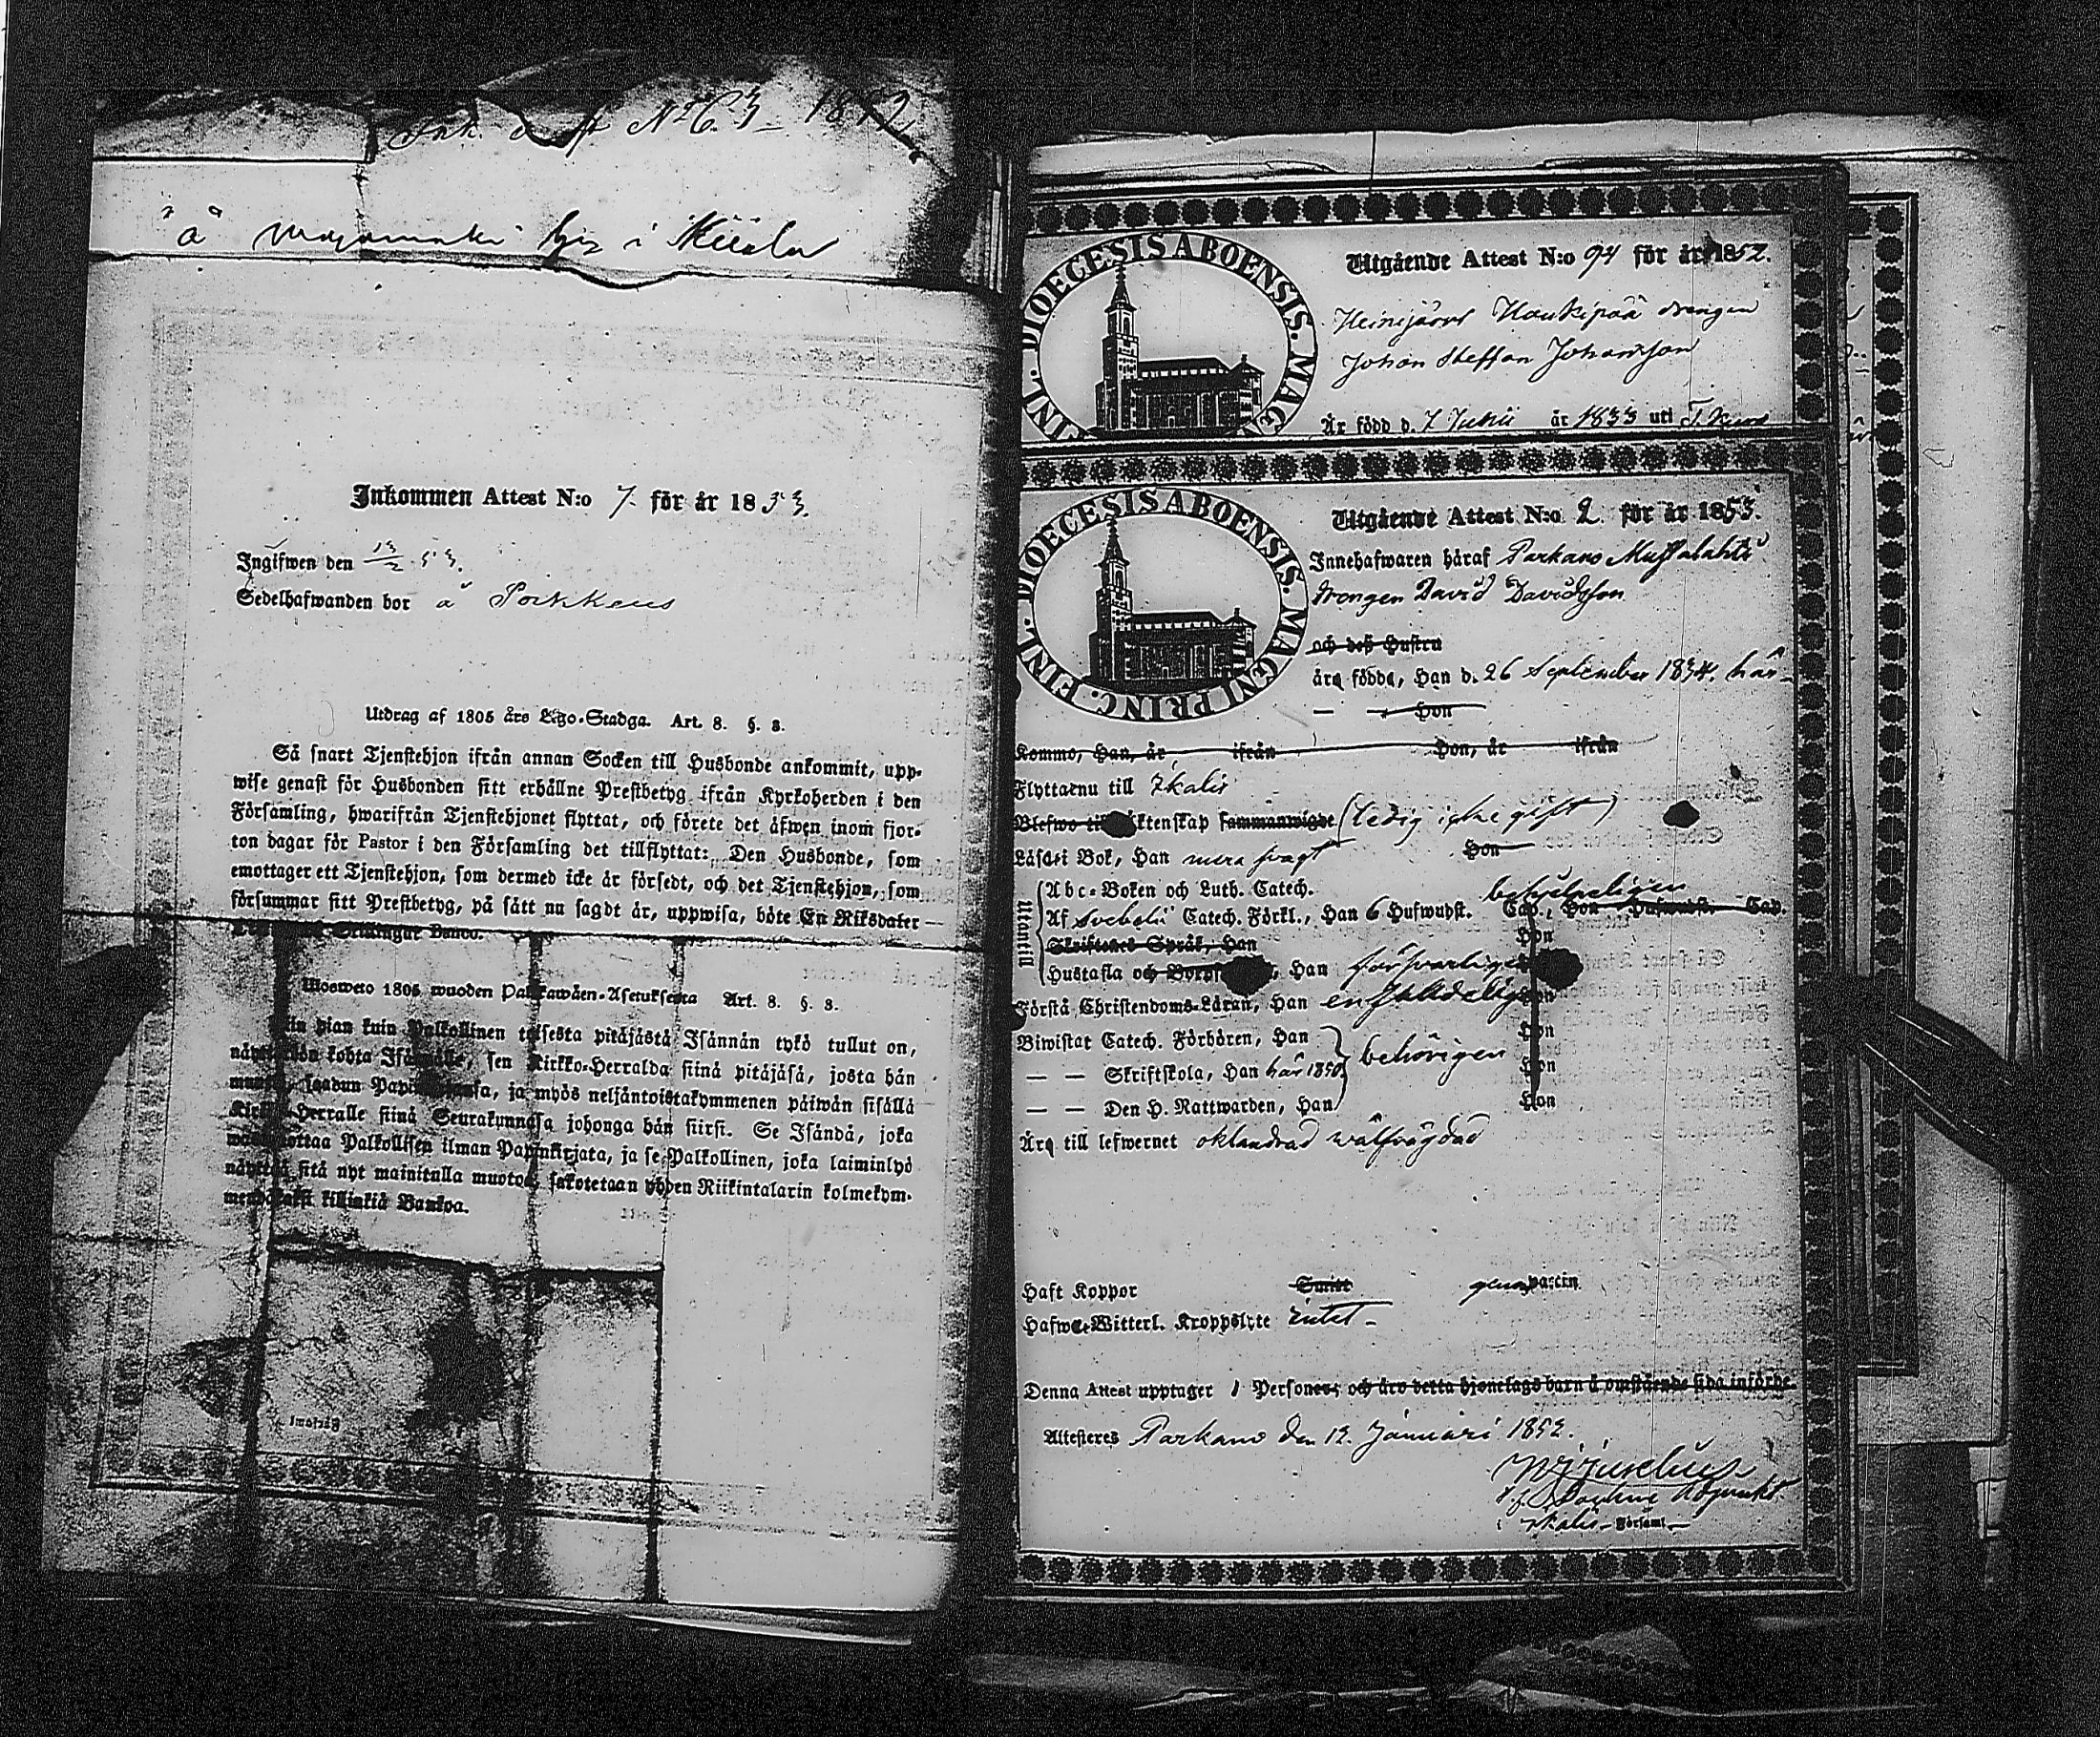 Ink. N:o 63 1852
å byn i
Inkommen Attest N:o 7. för år 1853.
Ingifwen den 13/2 53.
Sedelhafwanden bor å
Utdrag af 1805 års Lego-Stadga. Art. 8. §. 8.
Så snart Tjenstehjon ifrån annan Socken till Husbonde ankommit, upp-
wise genast för Husbonden sitt erhållne Prestbetyg ifrån Kyrkoherden i den
Församling, hwarifrån Tjenstehjonet flyttat, och förete det äfwen inom fjor-
ton dagar för Pastor i den Församling det tillflyttat: Den Husbonde, som
emottager ett Tjenstehjon, som dermed icke är försedt, och det Tjenstehjon, som
försummar sitt Prestbetyg, på sätt nu sagdt är, uppwisa, böte En Riksdaler
Banco.
Uloswето 1805 wuoden Palkkawäen-Asetuksesta Art. 8. §. 8.
pian kuin Palkollinen toisesta pitäjästä Isännän tykö tullut on,
kohta sen Kirkko-Herralda siinä pitäjäsä, josta hän
saadun ja myös neljäntoistakymmenen päiwän sisällä
Kirkko-Herralle siinä Seurakunnasa johonga hän siirsi. Se Isändä, joka
ottaa Palkollisen ilman Papinkirjata, ja se Palkollinen, joka laiminlyö
sitä nyt mainitulla muotoa, sakotetaan yhden Riikintalarin kolmekym-
killinkiä Bankoa.
DIOECESIS ABOENSIS. MAGNI FINL.
Utgående Attest N:o 94 för år 1852.
Heinijärvi Haukipää drengen
Johan Steffan Johansson
Är född d. 7 Junii år 1833 uti
DIOECESIS ABOENSIS. MAGNI PRINC. FINL.
Utgående Attest N:o 2. för år 1853.
Innehafwaren häraf Parkano Mustalahti
drengen David Davidsson
och deß Hustru
äro födde, Han d. 26 September 1834. här
— Hon
Komme, Han, år ifrån Hon, år ifrån
Flyttarnu till Ikalis
Blefwo till äktenskap sammanwigde (ledig icke gift)
Läser i Bok, Han mera swagt Hon
Utantill
Abc-Boken och Luth. Catech.
Af Svebelii Catech. Förkl., Han 6 Hufwudst. behjelpeligen Cap., Hon Hufwudst. Cap.
Skriftenes Språk, Han Hon
Hustafla och Han försvarligen Hon
Förstå Christendoms-Läran, Han enfaldeligen Hon
Biwistat Catech. Förhören, Han Hon
— — Skriftskola, Han här 1850 behörigen Hon
— — Den H. Nattwarden, Han Hon
Äro till lefwernet oklandrad wälfrägdad
Haft Koppor genom vaccin
Hafwe Witterl. Kroppslyte Intet —
Denna Attest upptager 1 Personer; och äro detta hjonelags barn å omstående sida införde.
Attesteres Parkano den 12. Januari 1853.
i Ikalis Församl.